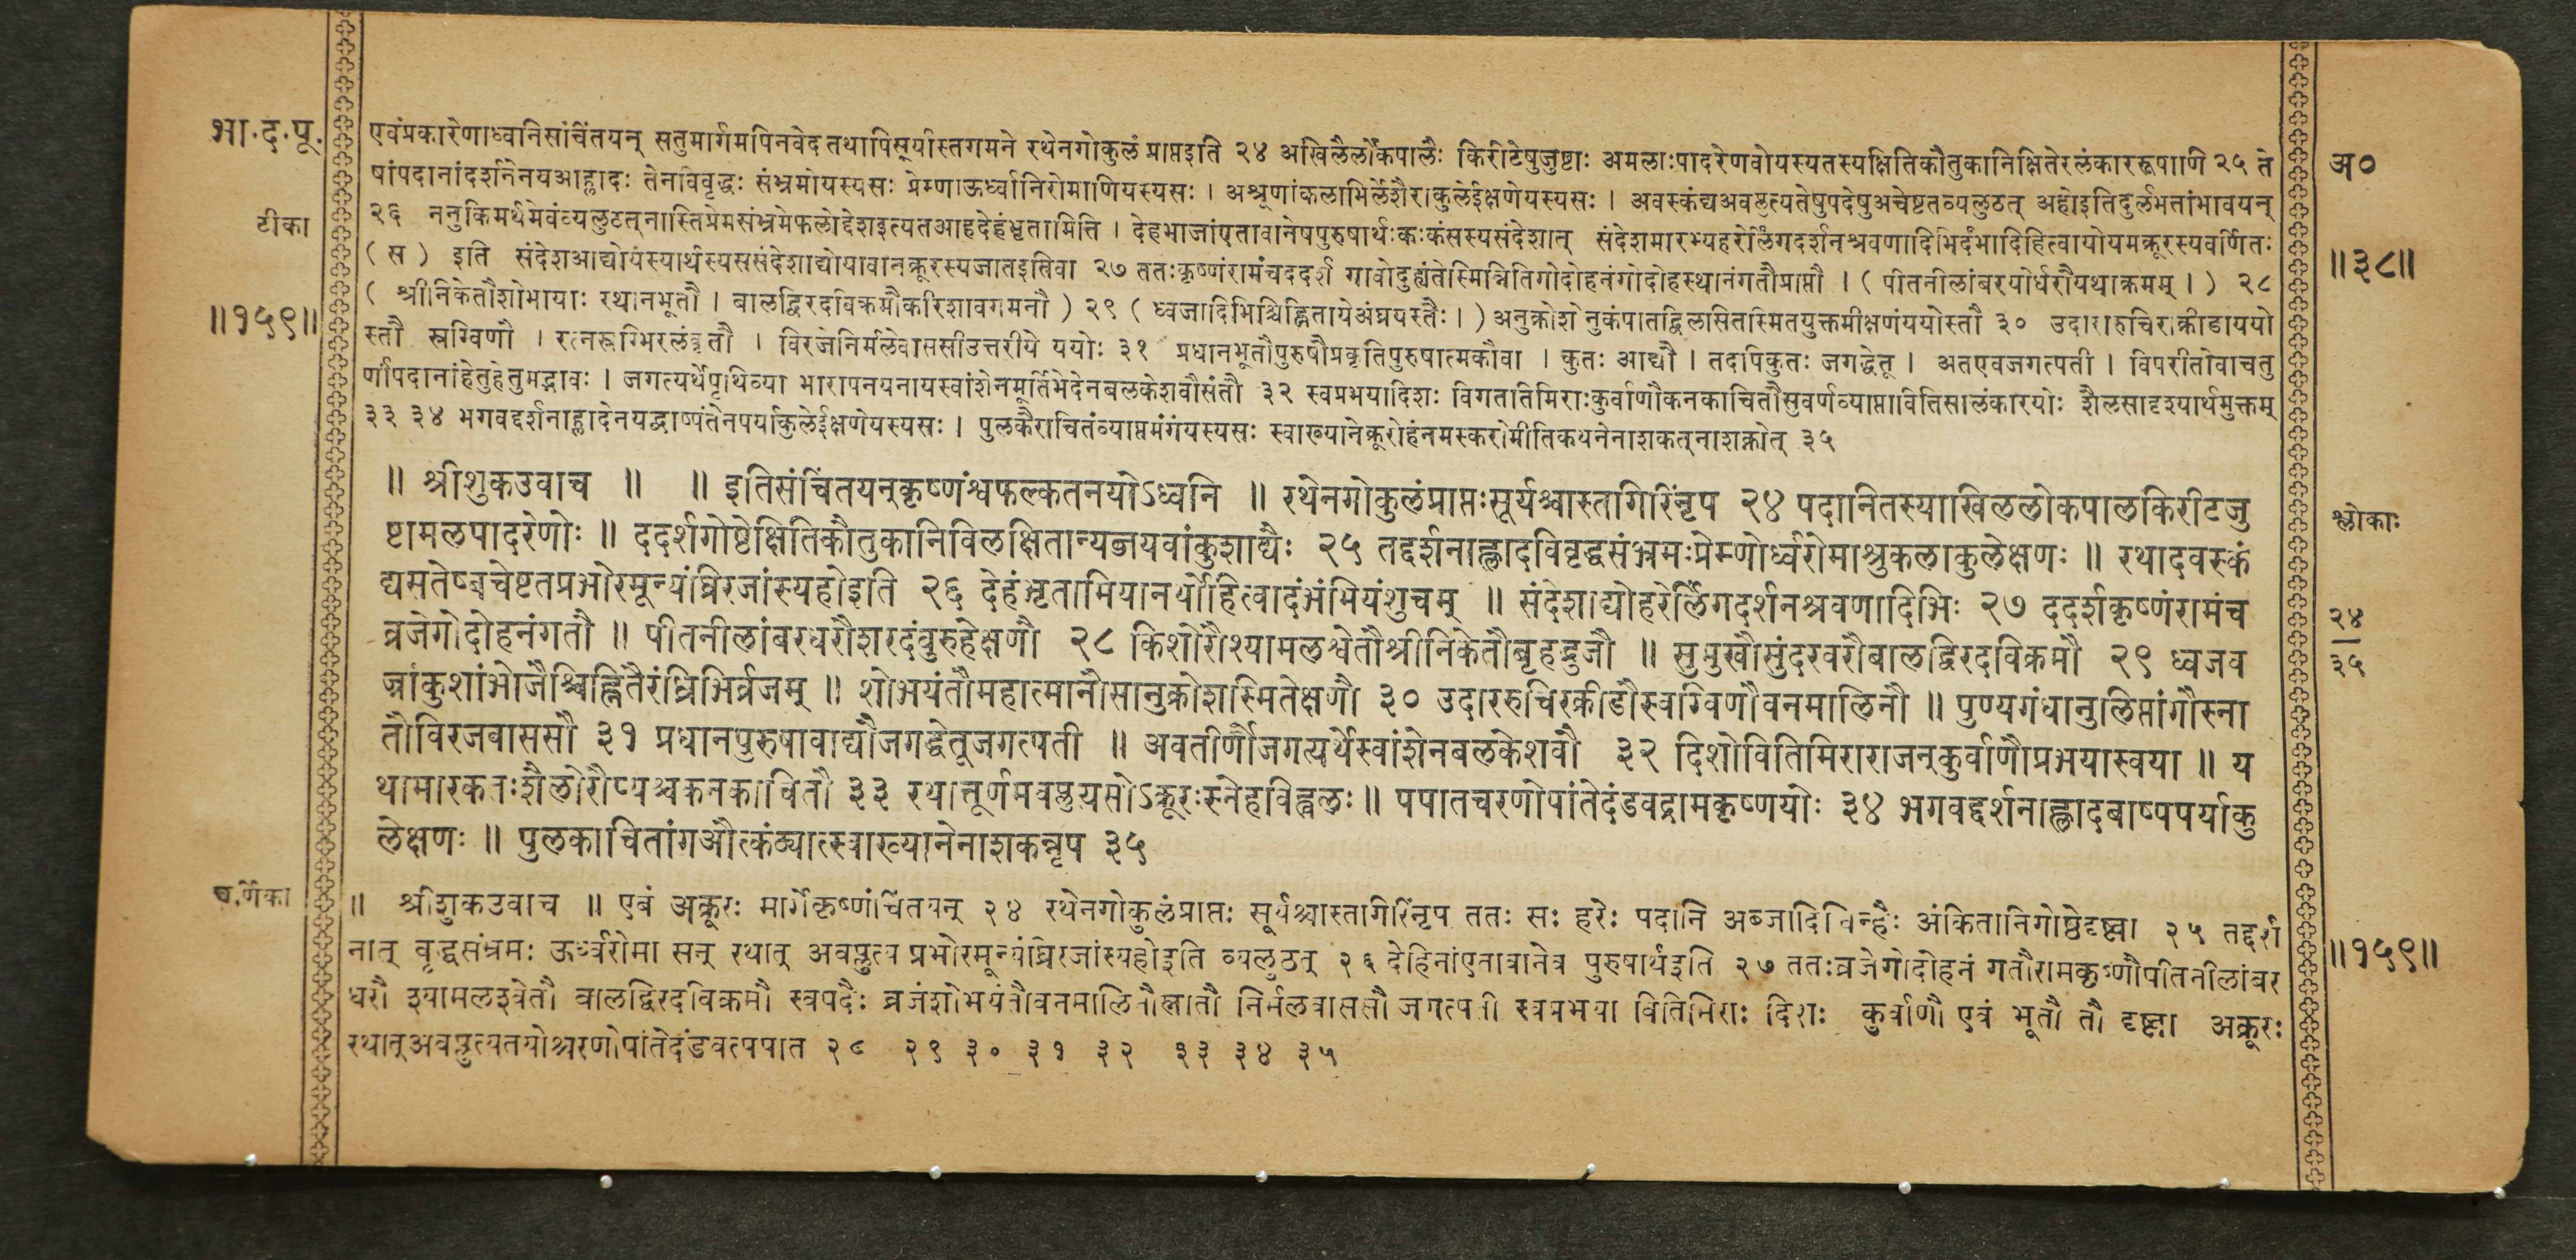 भा.द.पू.
अ०
एवंप्रकारेणाध्वनिसांचिंतयन् सतुमार्गमपिनवेद तथापिसूर्यास्तगमने रथेनगोकुलं प्राप्तइति २४ अखिलैर्लोकपालैः किरीटेषुजुष्टाः अमलाःपादरेणवोयस्यतस्यक्षितिकौतुकानिक्षितेरलंकाररूपाणि २५ ते
षांपदानांदर्शनेनयआह्लादः तेनविवृद्धः संभ्रमोयस्यसः प्रेम्णाऊर्ध्वानिरोमाणियस्यसः । अश्रूणांकलाभिर्लेशैराकुलेईक्षणेयस्यसः । अवस्कंद्यअवप्लुत्यतेषुपदेषुअचेष्टतव्यलुठत् अहोइतिदुर्लभतांभावयन्
टीका
२६ ननुकिमर्थमेवंव्यलुठत्नास्तिप्रेमसंभ्रमेफलोद्देशइत्यतआहदेहंभृतामिति । देहभाजांएतावानेषपुरुषार्थःकःकंसस्यसंदेशात् संदेशमारभ्यहरेर्लिंगदर्शनश्रवणादिभिर्दंभादिहित्वायोयमक्रूरस्यवर्णितः
॥३८॥
( स ) इति संदेशआद्योयस्यार्थस्यससंदेशाद्योयावानक्रूरस्यजातइतिवा २७ ततःकृष्णंरामंचददर्श गावोदुह्यंतेस्मिन्नितिगोदोहनंगोदोहस्थानंगतौप्राप्तौ । ( पीतनीलांबरयोर्धरौयथाक्रमम् । ) २८
॥१५९॥
( श्रीनिकेतौशोभायाः स्थानभूतौ । बालद्विरदविक्रमौकरिशावगमनौ ) २९ ( ध्वजादिभिश्चिह्नितायेअंघ्रयस्तैः । ) अनुक्रोशो नुकंपातद्विलसितस्मितयुक्तमीक्षणंययोस्तौ ३० उदारारुचिराक्रीडाययो
स्तौ स्रग्विणौ । रत्नस्रग्भिरलंकृतौ । विरजेनिर्मलेवाससीउत्तरीये ययोः ३१ प्रधानभूतौपुरुषौप्रकृतिपुरुषात्मकौवा । कुतः आद्यौ । तदपिकुतः जगद्धेतू । अतएवजगत्पती । विपरीतोवाचतु
र्णांपदानांहेतुहेतुमद्भावः । जगत्यर्थेपृथिव्या भारापनयनायस्वांशेनमूर्तिभेदेनबलकेशवौसंतौ ३२ स्वप्रभयादिशः विगततिमिराःकुर्वाणौकनकाचितौसुवर्णव्याप्तावितिसालंकारयोः शैलसादृश्यार्थमुक्तम्
३३ ३४ भगवद्दर्शनाह्लादेनयद्बाष्पंतेनपर्याकुलेईक्षणेयस्यसः । पुलकैराचितंव्याप्तमंगंयस्यसः स्वाख्यानेक्रूरोहंनमस्करोमीतिकथनेनाशकत्नाशक्नोत् ३५
॥ श्रीशुकउवाच ॥ ॥ इतिसंचिंतयन्कृष्णंश्वफल्कतनयोऽध्वनि ॥ रथेनगोकुलंप्राप्तःसूर्यश्चास्तागिरिंनृप २४ पदानितस्याखिललोकपालकिरीटजु
श्लोकाः
ष्टामलपादरेणोः ॥ ददर्शगोष्ठेक्षितिकौतुकानिविलक्षितान्यब्जयवांकुशाद्यैः २५ तद्दर्शनाह्लादविवृद्धसंभ्रमःप्रेम्णोर्ध्वरोमाश्रुकलाकुलेक्षणः ॥ रथादवस्कं
द्यसतेष्वचेष्टतप्रभोरमून्यंघ्रिरजांस्यहोइति २६ देहंभृतामियानर्थोहित्वादंभंभियंशुचम् ॥ संदेशाद्योहरेर्लिंगदर्शनश्रवणादिभिः २७ ददर्शकृष्णंरामंच
२४
३५
व्रजेगोदोहनंगतौ ॥ पीतनीलांबरधरौशरदंबुरुहेक्षणौ २८ किशोरौश्यामलश्वेतौश्रीनिकेतौबृहद्भुजौ ॥ सुमुखौसुंदरवरौबालद्विरदविक्रमौ २९ ध्वजव
ज्रांकुशांभोजैश्चिह्नितैरंघ्रिभिर्व्रजम् ॥ शोभयंतौमहात्मानौसानुक्रोशस्मितेक्षणौ ३० उदाररुचिरक्रीडौस्रग्विणौवनमालिनौ ॥ पुण्यगंधानुलिप्तांगौस्ना
तौविरजवाससौ ३१ प्रधानपुरुषावाद्यौजगद्धेतूजगत्पती ॥ अवतीर्णौजगत्यर्थेस्वांशेनबलकेशवौ ३२ दिशोवितिमिराराजन्कुर्वाणौप्रभयास्वया ॥ य
थामारकतःशैलोरौप्यश्चकनकाचितौ ३३ रथात्तूर्णमवप्लुत्यसोऽक्रूरःस्नेहविह्वलः ॥ पपातचरणोपांतेदंडवद्रामकृष्णयोः ३४ भगवद्दर्शनाह्लादबाष्पपर्याकु
लेक्षणः ॥ पुलकाचितांगऔत्कंठ्यात्स्वाख्यानेनाशकन्नृप ३५
चूर्णिका
॥ श्रीशुकउवाच ॥ एवं अक्रूरः मार्गेकृष्णंचिंतयन् २४ रथेनगोकुलंप्राप्तः सूर्यश्चास्तागिरिंनृप ततः सः हरेः पदानि अब्जादिचिन्हैः अंकितानिगोष्ठेदृष्ट्वा २५ तद्दर्श
नात् वृद्धसंभ्रमः ऊर्ध्वरोमा सन् रथात् अवप्लुत्य प्रभोरमून्यंघ्रिरजांस्यहोइति व्यलुठत् २६ देहिनांएतावानेव पुरुषार्थइति २७ ततःव्रजेगोदोहनं गतौरामकृष्णौपीतनीलांबर
॥१५९॥
धरौ श्यामलश्वेतौ बालद्विरदविक्रमौ स्वपदैः व्रजंशोभयंतौवनमालिनौस्नातौ निर्मलवाससौ जगत्पती स्वप्रभया वितिमिराः दिशः कुर्वाणौ एवं भूतौ तौ दृष्ट्वा अक्रूरः
रथात्अवप्लुत्यतयोश्चरणोपांतेदंडवत्पपात २८ २९ ३० ३१ ३२ ३३ ३४ ३५